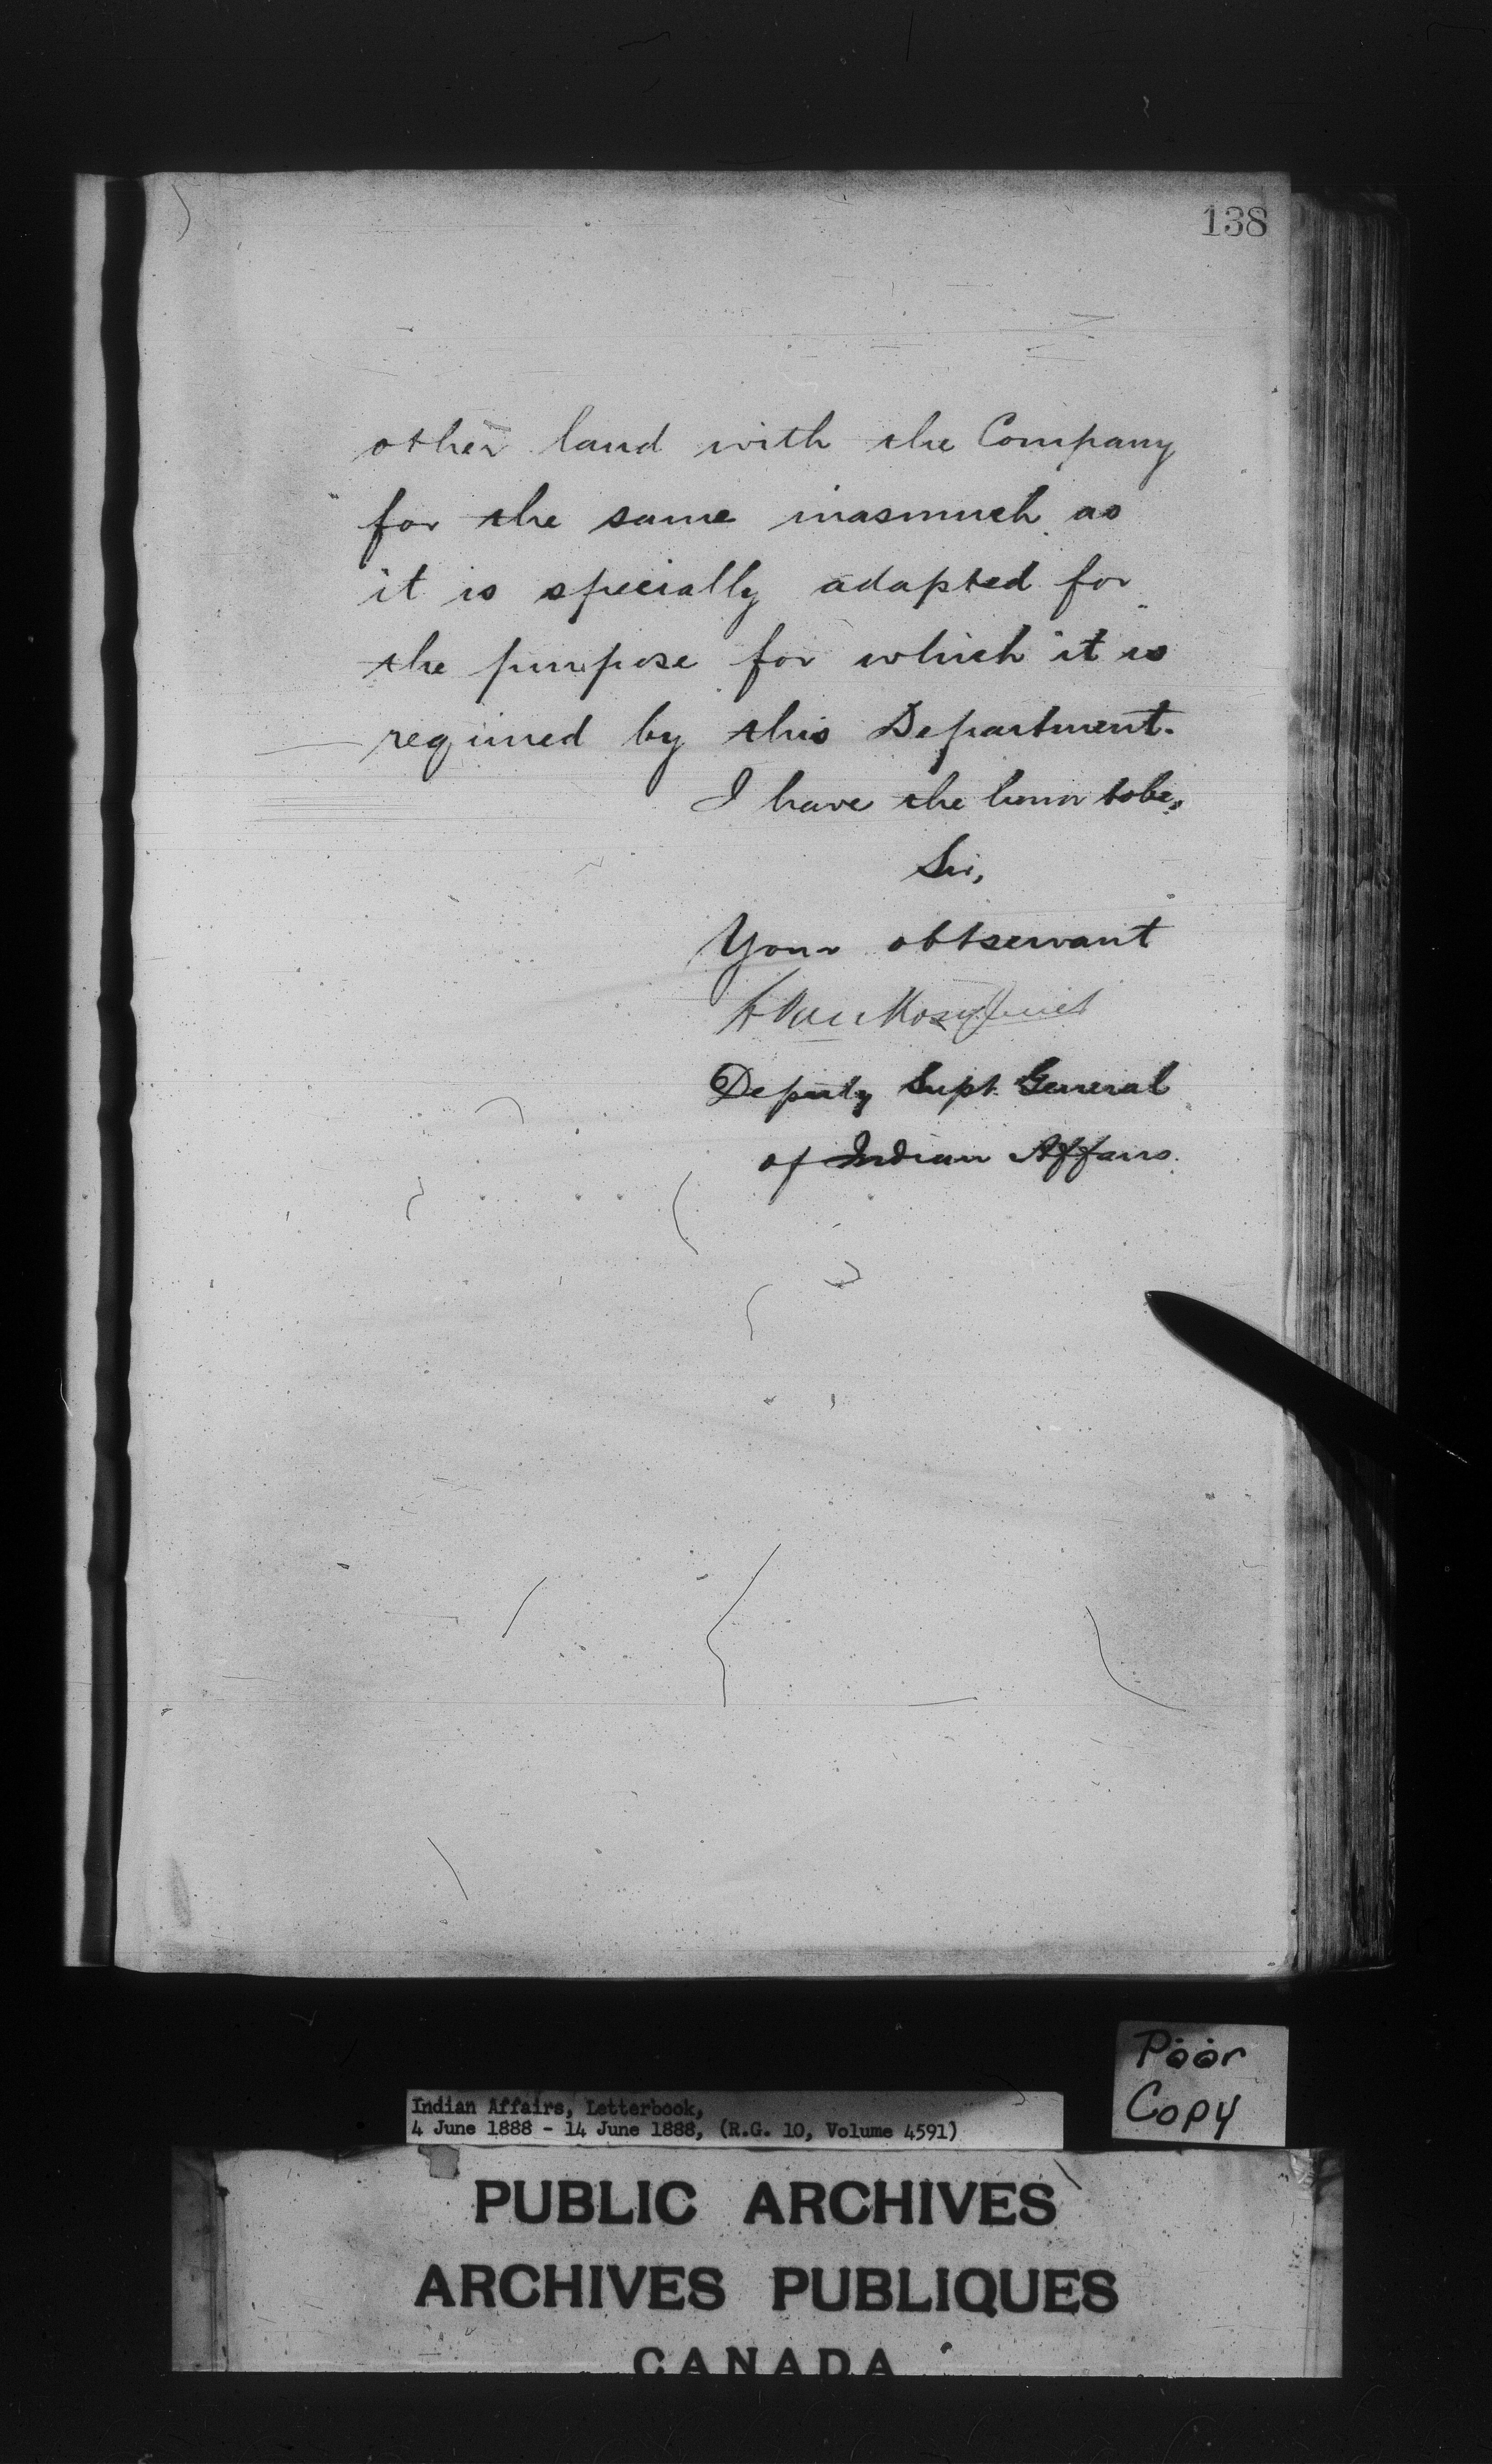 138
other land with the Company
for the same inasmuch as
it is specially adapted for
the purpose for which it is
required by this Department.
I have the honor to be,
Sir,
Your obt servant
L. Van Koughnet
Deputy Supt. General
of Indian Affairs.
Poor
Copy
Indian Affairs, Letterbook,
4 June 1888 - 14 June 1888, (R.G. 10, Volume 4591)
PUBLIC ARCHIVES
ARCHIVES PUBLIQUES
CANADA